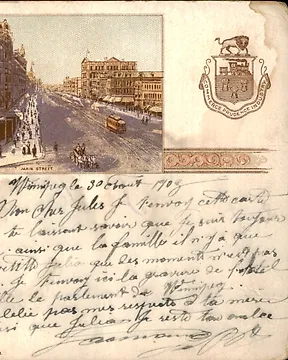 MAIN STREET
COMMERCE PRUDENCE INDUSTRY
Winnipeg le 30 Aout 190
Mon cher Jules Je t'envoy cette carte
te laissant savoir que je suis toujours
ainsi que la famille il n'y a que
petite Julia que des moments n'est pas
Je t'envoy ici la gravure de
le parlement de Winnipeg
pas mes respects à ta mère
si que Julia Je reste ton oncle